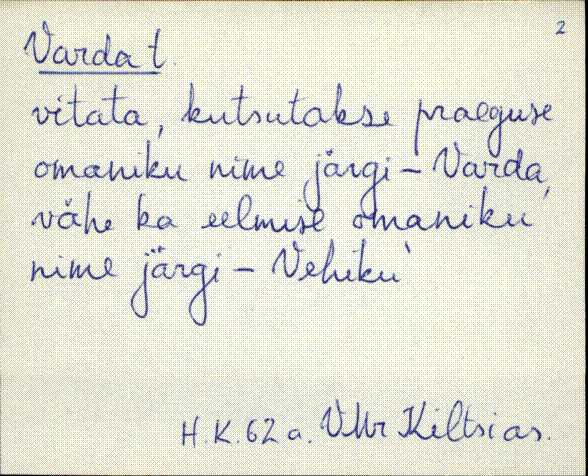 2
Varda t.
vitata, kutsutakse praeguse
omaniku nime järgi – Varda,
vähe ka eelmise omaniku
nime järgi – Vehiku`
H.K. 62 a. VMr Kiltsi as.